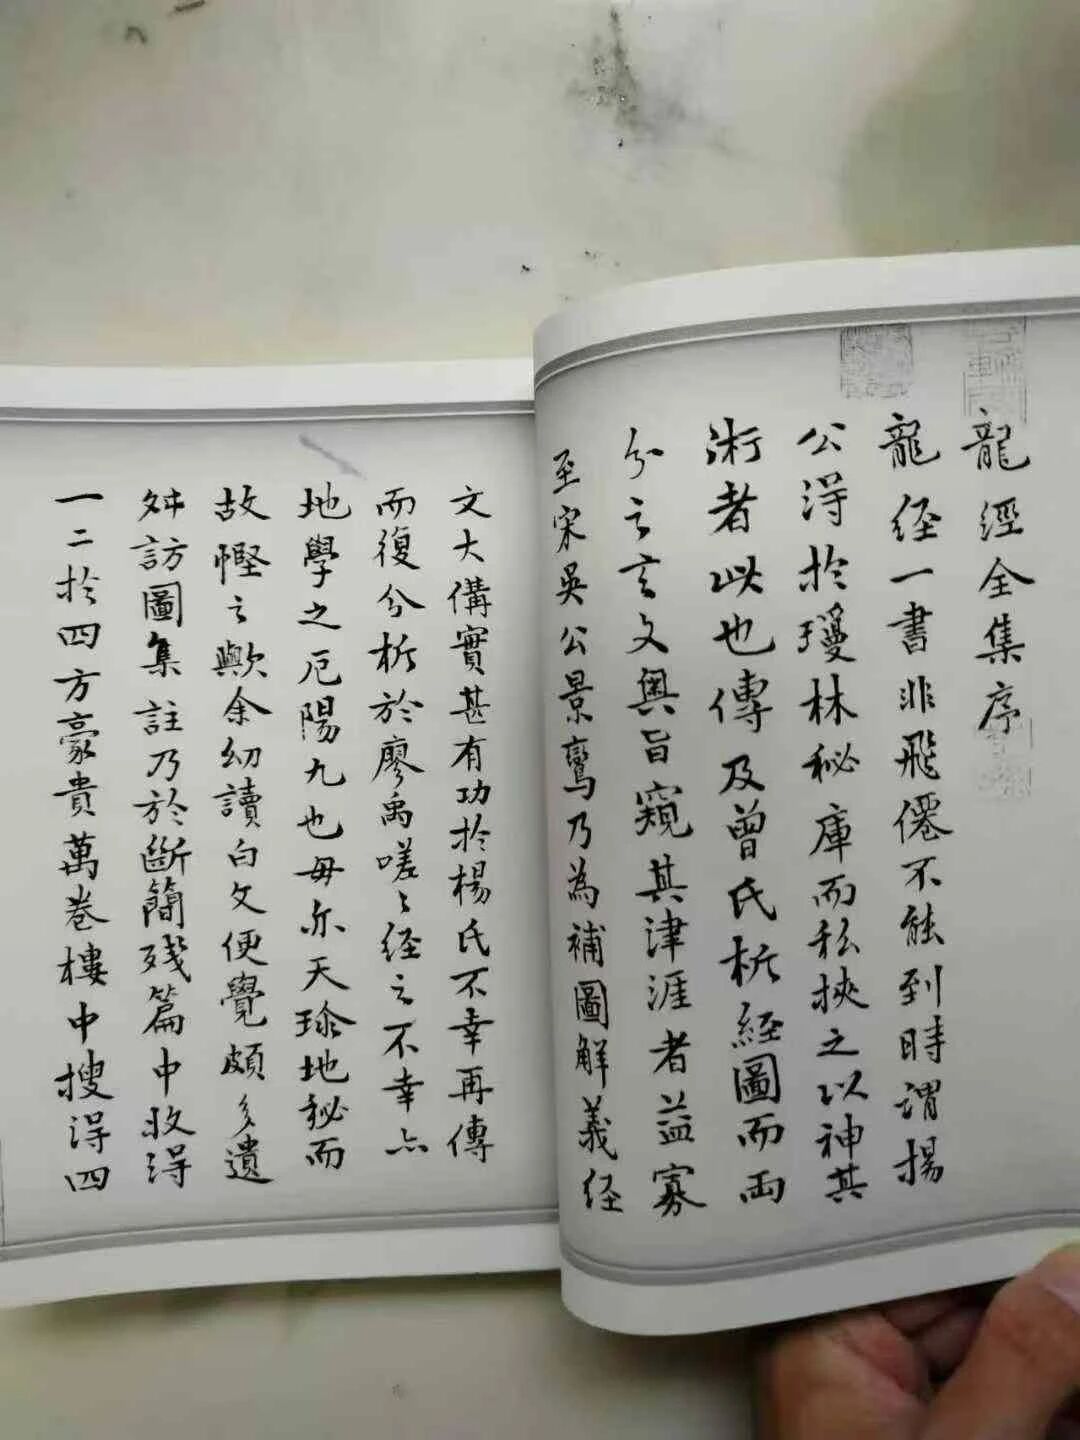 龍經全集序
龍经一書非飛僊不能到時謂楊
公淂扵瓊林秘庫而私挾之以神其
術者此也傳及曾氏析經圖而両
分之言文奥旨窺其津涯者益寡
至宋吳公景鸞乃為補圖解義经
文大備實甚有功扵楊氏不幸再傳
而復分析於廖禹嗟〻经之不幸亦
地學之厄陽九也毋亦天珍地秘而
故慳之歟余幼讀白文便覺頗多遺
舛訪圖集註乃於斷簡殘篇中收淂
一二扵四方豪貴萬卷樓中搜淂四